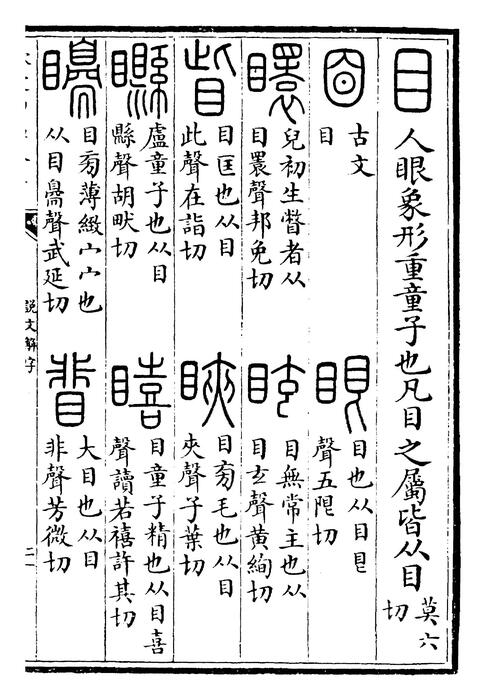 目人眼象形重童子也凡目之屬皆从目莫六切
𡇡古文目
眼目也从目艮聲五限切
瞏兒初生瞥者从目瞏聲邦免切
眩目無常主也从目玄聲黃絢切
眥目匡也从目此聲在詣切
䀹目㫄毛也从目夾聲子葉切
矎盧童子也从目縣聲胡畎切
瞦目童子精也从目喜聲讀若禧許其切
矏目㫄薄緻宀宀也从目臱聲武延切
䀝大目也从目非聲芳微切
說文解字